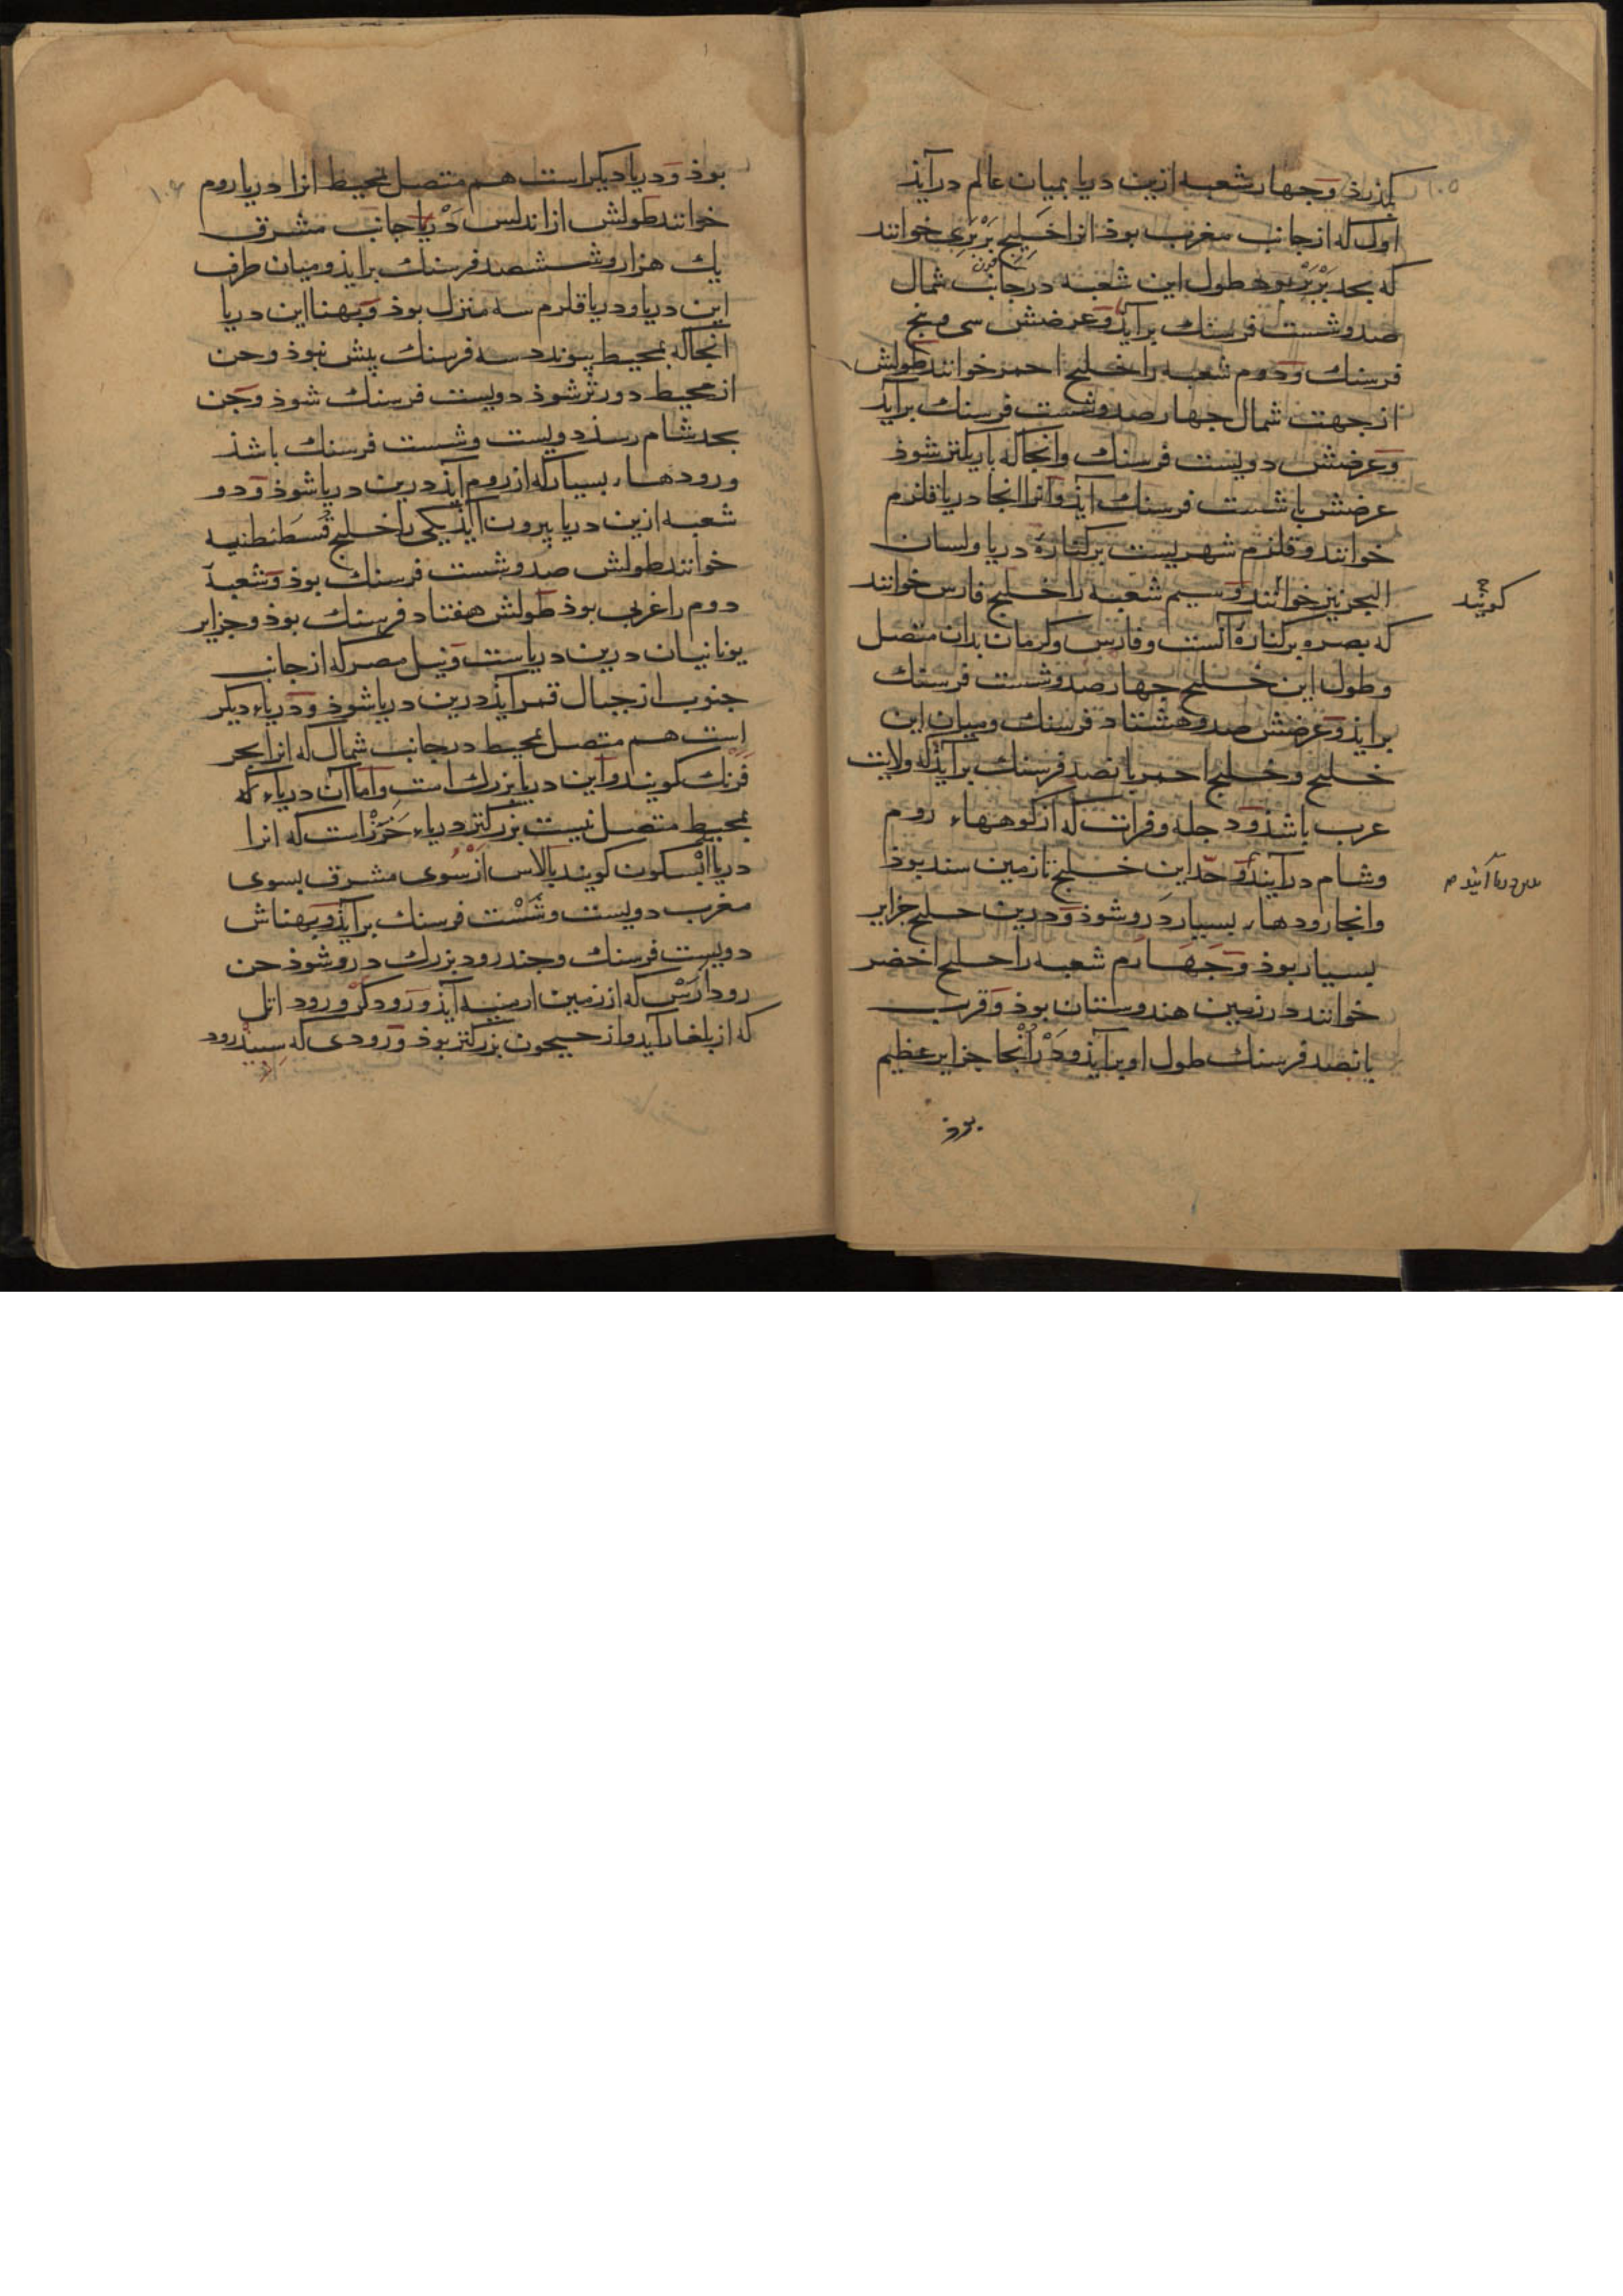 ۱۰۵
بگذرذ و جهار شعبه ازین دریا بمیان عالم درآیذ
اول که از جانب مغرب بوذ انرا خلیج بَرْبَری خوانند
که بحد بَرْبَر بوذ طول این شعبه در جانب شمال
صد و شست فرسنك برآیذ و عرضش سی و پنج
فرسنك و دوم شعبه را خلیج احمر خوانند طولش
از جهت شمال جهار صد و شست فرسنك برآیذ
و عرضش دویست فرسنك وانجا که باریکتر شوذ
عرضش با شست فرسنك آیذ و انرا انجا دریا قلزم
خوانند و قلزم شهریست بر کنارهٔ دریا ولسان
البحر نیز خوانند و سیم شعبه را خلیج فارس خوانند
کویند
که بصره بر کنارهٔ آنست و فارس و کرمان بدان متصل
و طول این خلیج جهار صد و شست فرسنك
برایذ و عرضش صد و هشتاد فرسنك و میان این
خلیج و خلیج احمر پانصد فرسنك برآیذ که ولایت
عرب باشذ و دجله و فرات که از کوهها، روم
و شام درآیند و حدّ این خلیج تا زمین سند بوذ
وانجا رودها، بسیار دَرو شوذ و درین خلیج جزایر
بسیار بوذ و جَهَارم شعبه را خلیج اخضر
خوانند در زمین هندوستان بوذ و قرب
پانصد فرسنك طول او برآیذ و دَرْآنجا جزایر عظیم
بوذ
۱۰۶
بوذ و دریا دیکر است هم متصل بمحیط انرا دریا روم
خوانند طولش از اندلس دَرْیا جانب مشرق
یك هزار و ششصد فرسنك برایذ و میان طرف
این دریا و دریا قلزم سه منزل بوذ و پهنا این دریا
انجا که بمحیط پیوندد سه فرسنك بیش نبوذ و چن
از محیط دورتر شوذ دویست فرسنك شوذ و چن
بحد شام رسذ دویست و شست فرسنك باشذ
و رودها، بسیار که از روم آیذ درین دریا شوذ و دو
شعبه ازین دریا بیرون آیذ یکی را خلیج قُسطَنطنیه
خوانند طولش صد و شست فرسنك بوذ و شعبهٔ
دوم را غربی بوذ طولش هفتاد فرسنك بوذ و جزایر
یونانیان درین دریاست و نیل مصر که از جانب
جنوب از جبال قمر آیذ درین دریا شوذ و دریاء دیکر
است هم متصل بمحیط در جانب شمال که انرا بحر
فَرَنْك کویند و این دریا بزرك است و اما آن دریاء که
بمحیط متصل نیست بزرکتر دریاء خَزَرْ است که انرا
دریا ابْسکون کویند بالاس از سُوی مشرق بسوی
مغرب دویست و شَسْت فرسنك برآیذ و پهناش
دویست فرسنك و چند رود بزرك درو شوذ چن
رود اَرَسْ که از زمین ارمینیه آیذ و رَود کُرْ و رود اتل
که از بلغار آید و از جیحون بزرکتر بوذ و رَودی که سِبیذرود